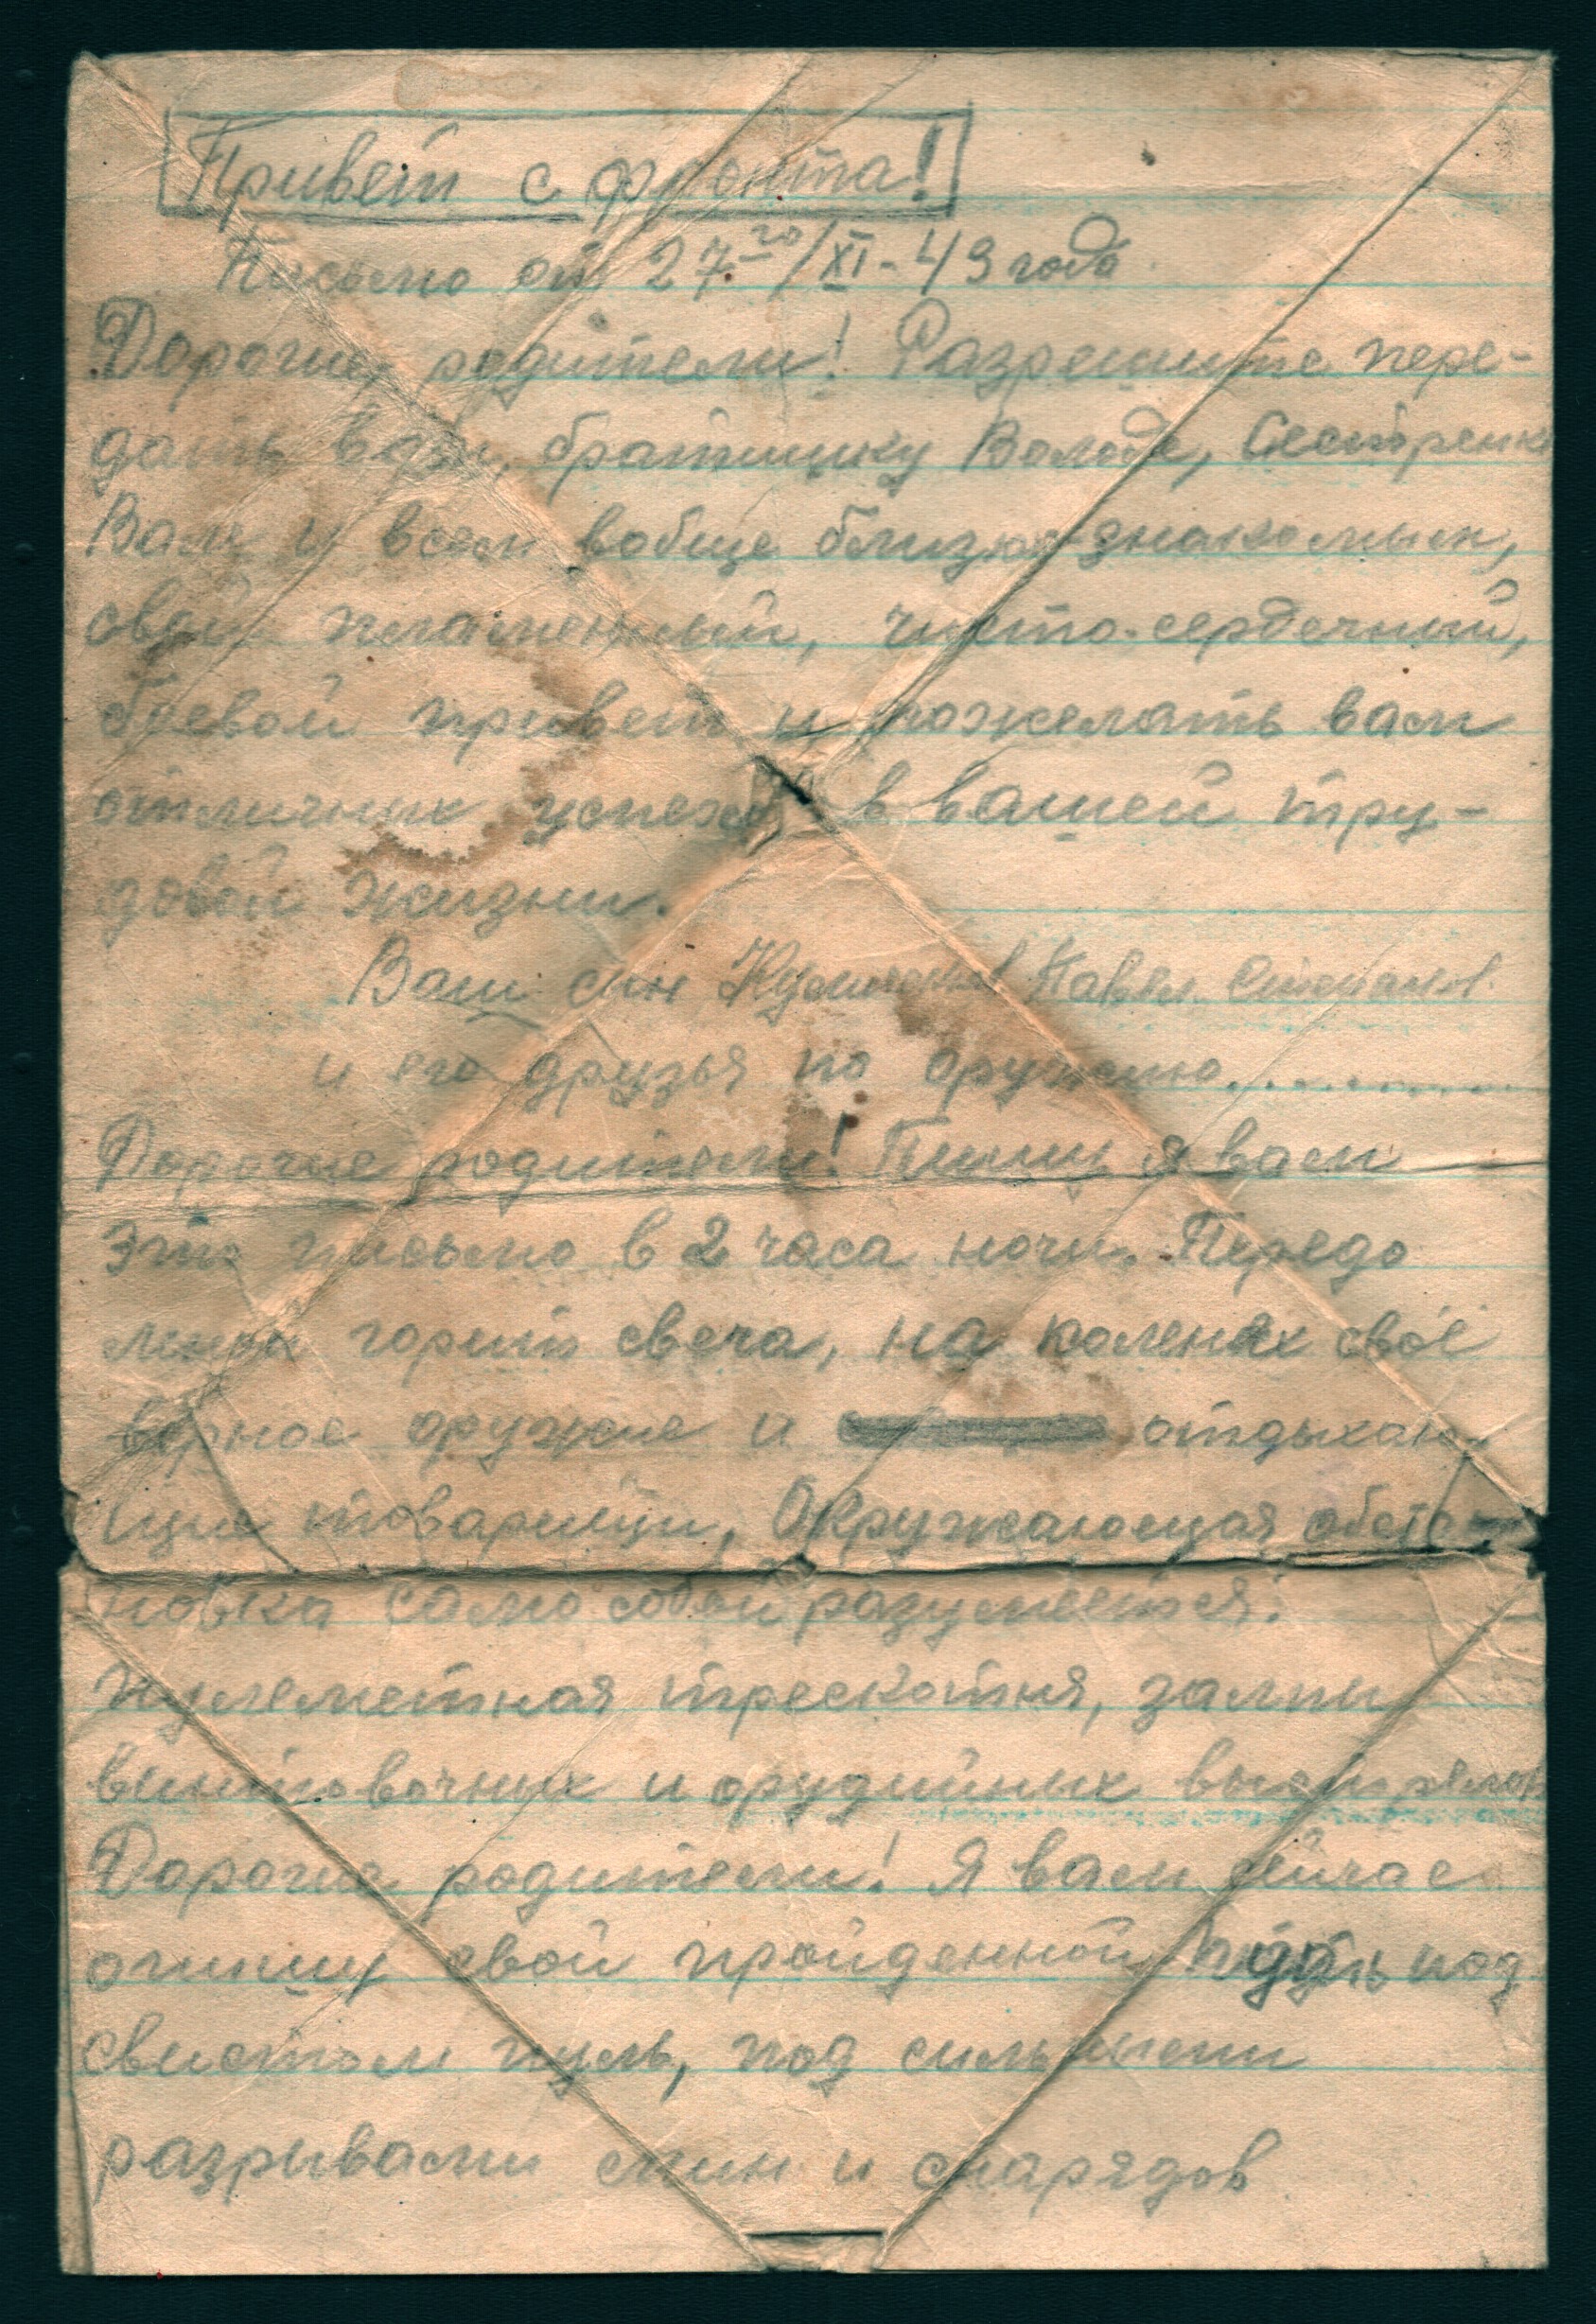 Привет с фронта!
Письмо от 27го/XI-43 года
Дорогие родители! Разрешите пере-
дать вам, братишку Володе, Сестренке
Вале и всем вобще близко-знакомым,
свой пламенный, чисто-сердечный,
боевой привет и пожелать вам
отличных успехов в вашей тру-
довой жизни.
Ваш сын Павел Степанов.
и его друзья по оружию..........
Дорогие родители! Пишу я вам
это письмо в 2 часа ночи. Передо
мной горит свеча, на коленях своё
верное оружие и отдыхаю-
щие товарищи. Окружающая обста-
новка само собой разумеется:
пулеметная трескотня, залпы
винтовочных и орудийных выстрелов
Дорогие родители! Я вам сейчас
опишу свой пройденной путь под
свистом пуль, под сильными
разрывами мин и снарядов